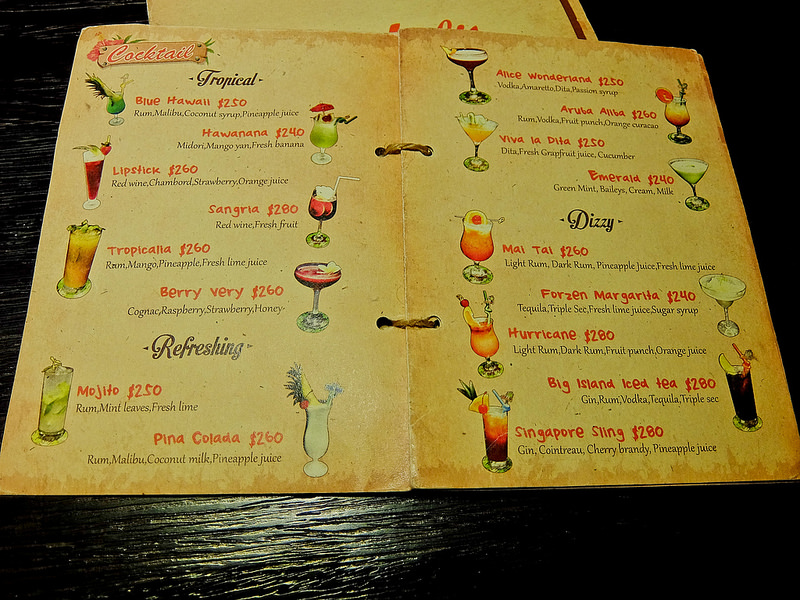 Cocktail
Tropical
Blue Hawaii $250
Rum,Malibu,Coconut syrup,Pineapple juice
Hawanana $240
Midori,Mango yan,Fresh banana
Lipstick $260
Red wine,Chambord,Strawberry,Orange juice
Sangria $280
Red wine,Fresh fruit
Tropicalia $260
Rum,Mango,Pineapple,Fresh lime juice
Berry Very $260
Cognac,Raspberry,Strawberry,Honey
Refreshing
Mojito $250
Rum,Mint leaves,Fresh lime
Pina Colada $260
Rum,Malibu,Coconut milk,Pineapple juice
Alice Wonderland $250
Vodka,Amaretto,Dita,Passion syrup
Aruba Aliba $260
Rum,Vodka,Fruit punch,Orange curacao
Viva la Dita $250
Dita,Fresh Grapfruit juice, Cucumber
Emerald $240
Green Mint, Baileys, Cream, Milk
Dizzy
Mai Tai $260
Light Rum, Dark Rum, Pineapple Juice,Fresh lime juice
Forzen Margarita $240
Tequila,Triple Sec,Fresh lime juice,Sugar syrup
Hurricane $280
Light Rum,Dark Rum,Fruit punch,Orange juice
Big Island Iced tea $280
Gin,Rum,Vodka,Tequila,Triple sec
Singapore Sling $280
Gin, Cointreau, Cherry brandy, Pineapple juice